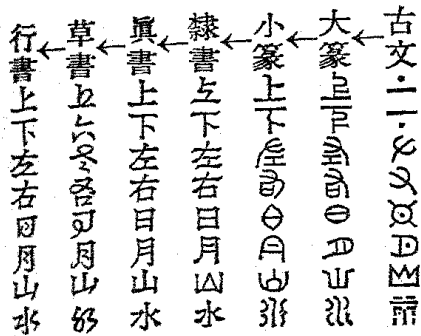 古文上下左右日月山水
大篆上下左右日月山水
小篆上下左右日月山水
隸書上下左右日月山水
眞書上下左右日月山水
草書上下左右日月山水
行書上下左右日月山水